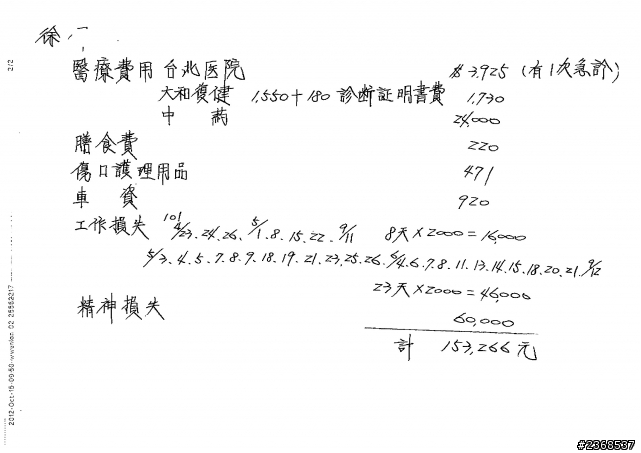 徐、一、
醫療費用 台北医院 $3,925 (有1次急診)
大和復健 1,550+180 診断証明書費 1,730
中 葯 24,000
膳食費 220
傷口護理用品 471
車 資 920
工作損失 101 4/23.24.26. 5/1.8.15.22. 9/11 8天×2000=16,000
5/3.4.5.7.8.9.18.19.21.23.25.26. 6/4.6.7.8.11.13.14.15.18.20.21. 9/12
23天×2000=46,000
精神損失 60,000
計 153,266元
2/2
2012-Oct-15 09:50
02 25562217
#2368537